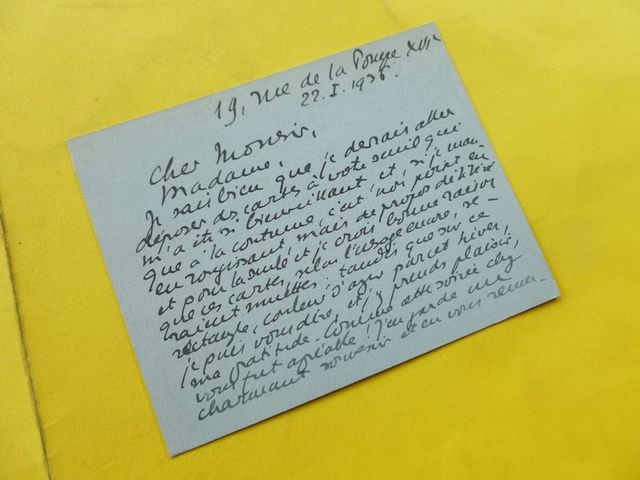 19, rue de la Pompe XVIe
22.I.1936.
Cher Monsieur,
Madame,
Je sais bien que je devrais aller
déposer des cartes à votre seuil qui
m'a été si bienveillant et, si je man-
que à la coutume, c'est, non point en
en rougissant, mais de propos délibéré
et pour la seule et je crois bonne raison
que ces cartes, selon l'usage encore, se-
raient muettes : tandis que sur ce
rectangle, couleur d'azur par cet hiver,
je puis vous dire, et j'y prends plaisir,
ma gratitude. Comme cette soirée chez
vous fut agréable ! J'en garde un
charmant souvenir et en vous remer-